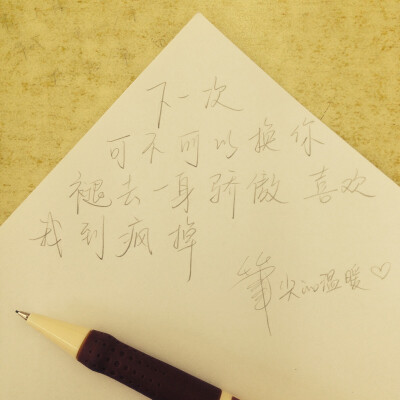 下一次
可不可以换你
褪去一身骄傲 喜欢
我到疯掉
笔尖的温暖♡